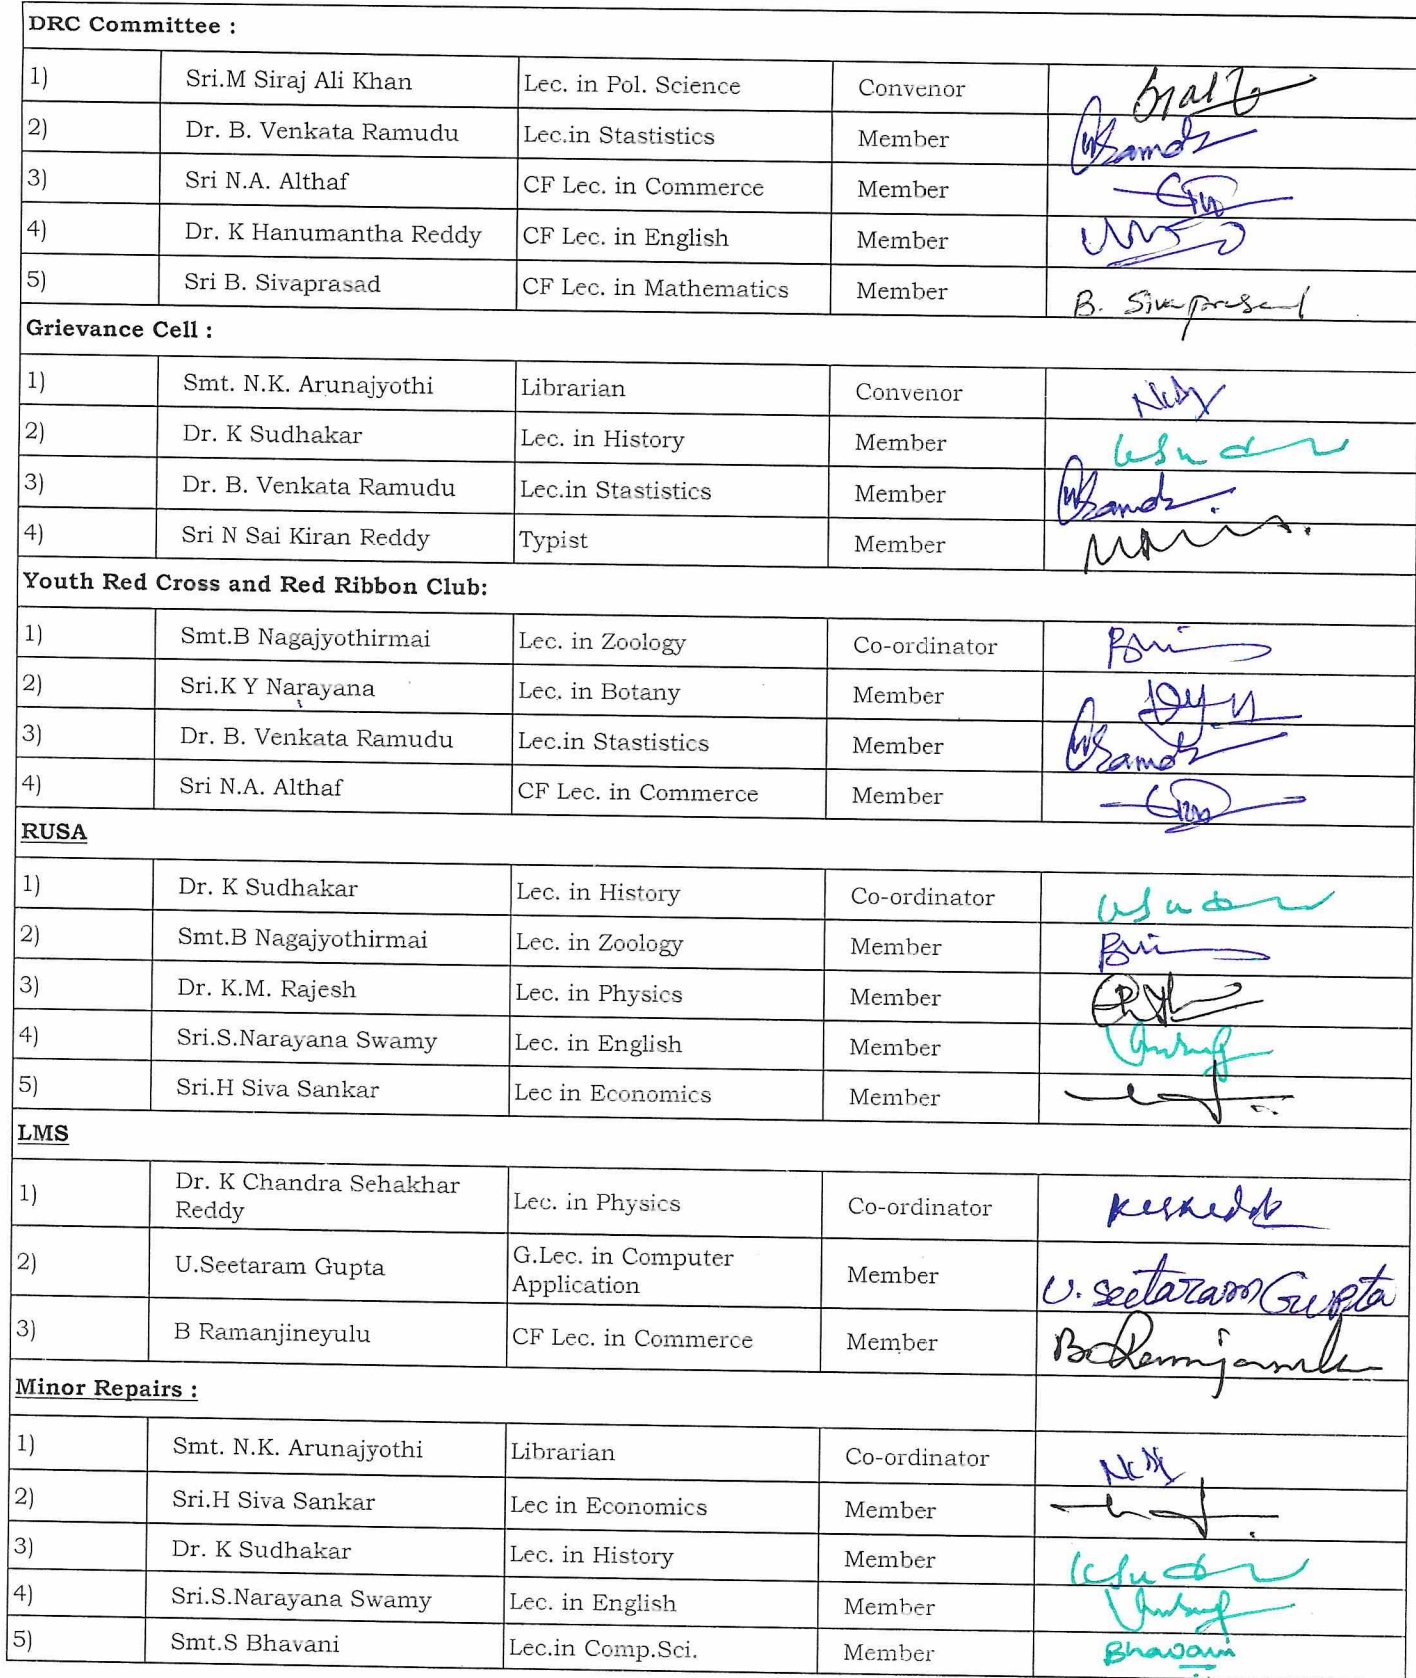 DRC Committee :
1) Sri.M Siraj Ali Khan Lec. in Pol. Science Convenor
2) Dr. B. Venkata Ramudu Lec.in Stastistics Member
3) Sri N.A. Althaf CF Lec. in Commerce Member
4) Dr. K Hanumantha Reddy CF Lec. in English Member
5) Sri B. Sivaprasad CF Lec. in Mathematics Member B. Sivaprasad
Grievance Cell :
1) Smt. N.K. Arunajyothi Librarian Convenor
2) Dr. K Sudhakar Lec. in History Member
3) Dr. B. Venkata Ramudu Lec.in Stastistics Member
4) Sri N Sai Kiran Reddy Typist Member
Youth Red Cross and Red Ribbon Club:
1) Smt.B Nagajyothirmai Lec. in Zoology Co-ordinator
2) Sri.K Y Narayana Lec. in Botany Member
3) Dr. B. Venkata Ramudu Lec.in Stastistics Member
4) Sri N.A. Althaf CF Lec. in Commerce Member
RUSA
1) Dr. K Sudhakar Lec. in History Co-ordinator
2) Smt.B Nagajyothirmai Lec. in Zoology Member
3) Dr. K.M. Rajesh Lec. in Physics Member
4) Sri.S.Narayana Swamy Lec. in English Member
5) Sri.H Siva Sankar Lec in Economics Member
LMS
1) Dr. K Chandra Sehakhar
Reddy Lec. in Physics Co-ordinator
2) U.Seetaram Gupta G.Lec. in Computer
Application Member U. Seetaram Gupta
3) B Ramanjineyulu CF Lec. in Commerce Member
Minor Repairs :
1) Smt. N.K. Arunajyothi Librarian Co-ordinator
2) Sri.H Siva Sankar Lec in Economics Member
3) Dr. K Sudhakar Lec. in History Member
4) Sri.S.Narayana Swamy Lec. in English Member
5) Smt.S Bhavani Lec.in Comp.Sci. Member Bhavani